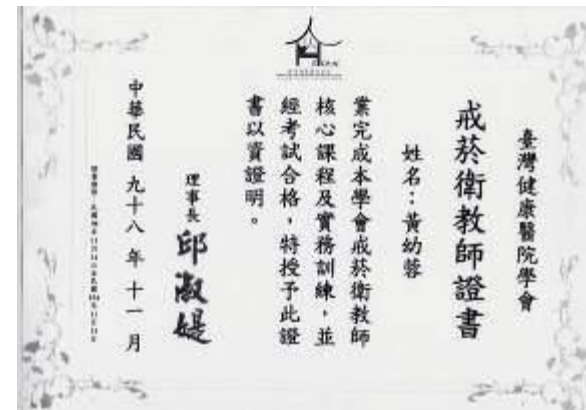 臺灣健康醫院學會
戒菸衛教師證書
姓名：黃幼蓉
業完成本學會戒菸衛教師
核心課程及實務訓練，並
經考試合格，特授予此證
書以資證明。
理事長 邱淑媞
中華民國 九十八 年 十一 月